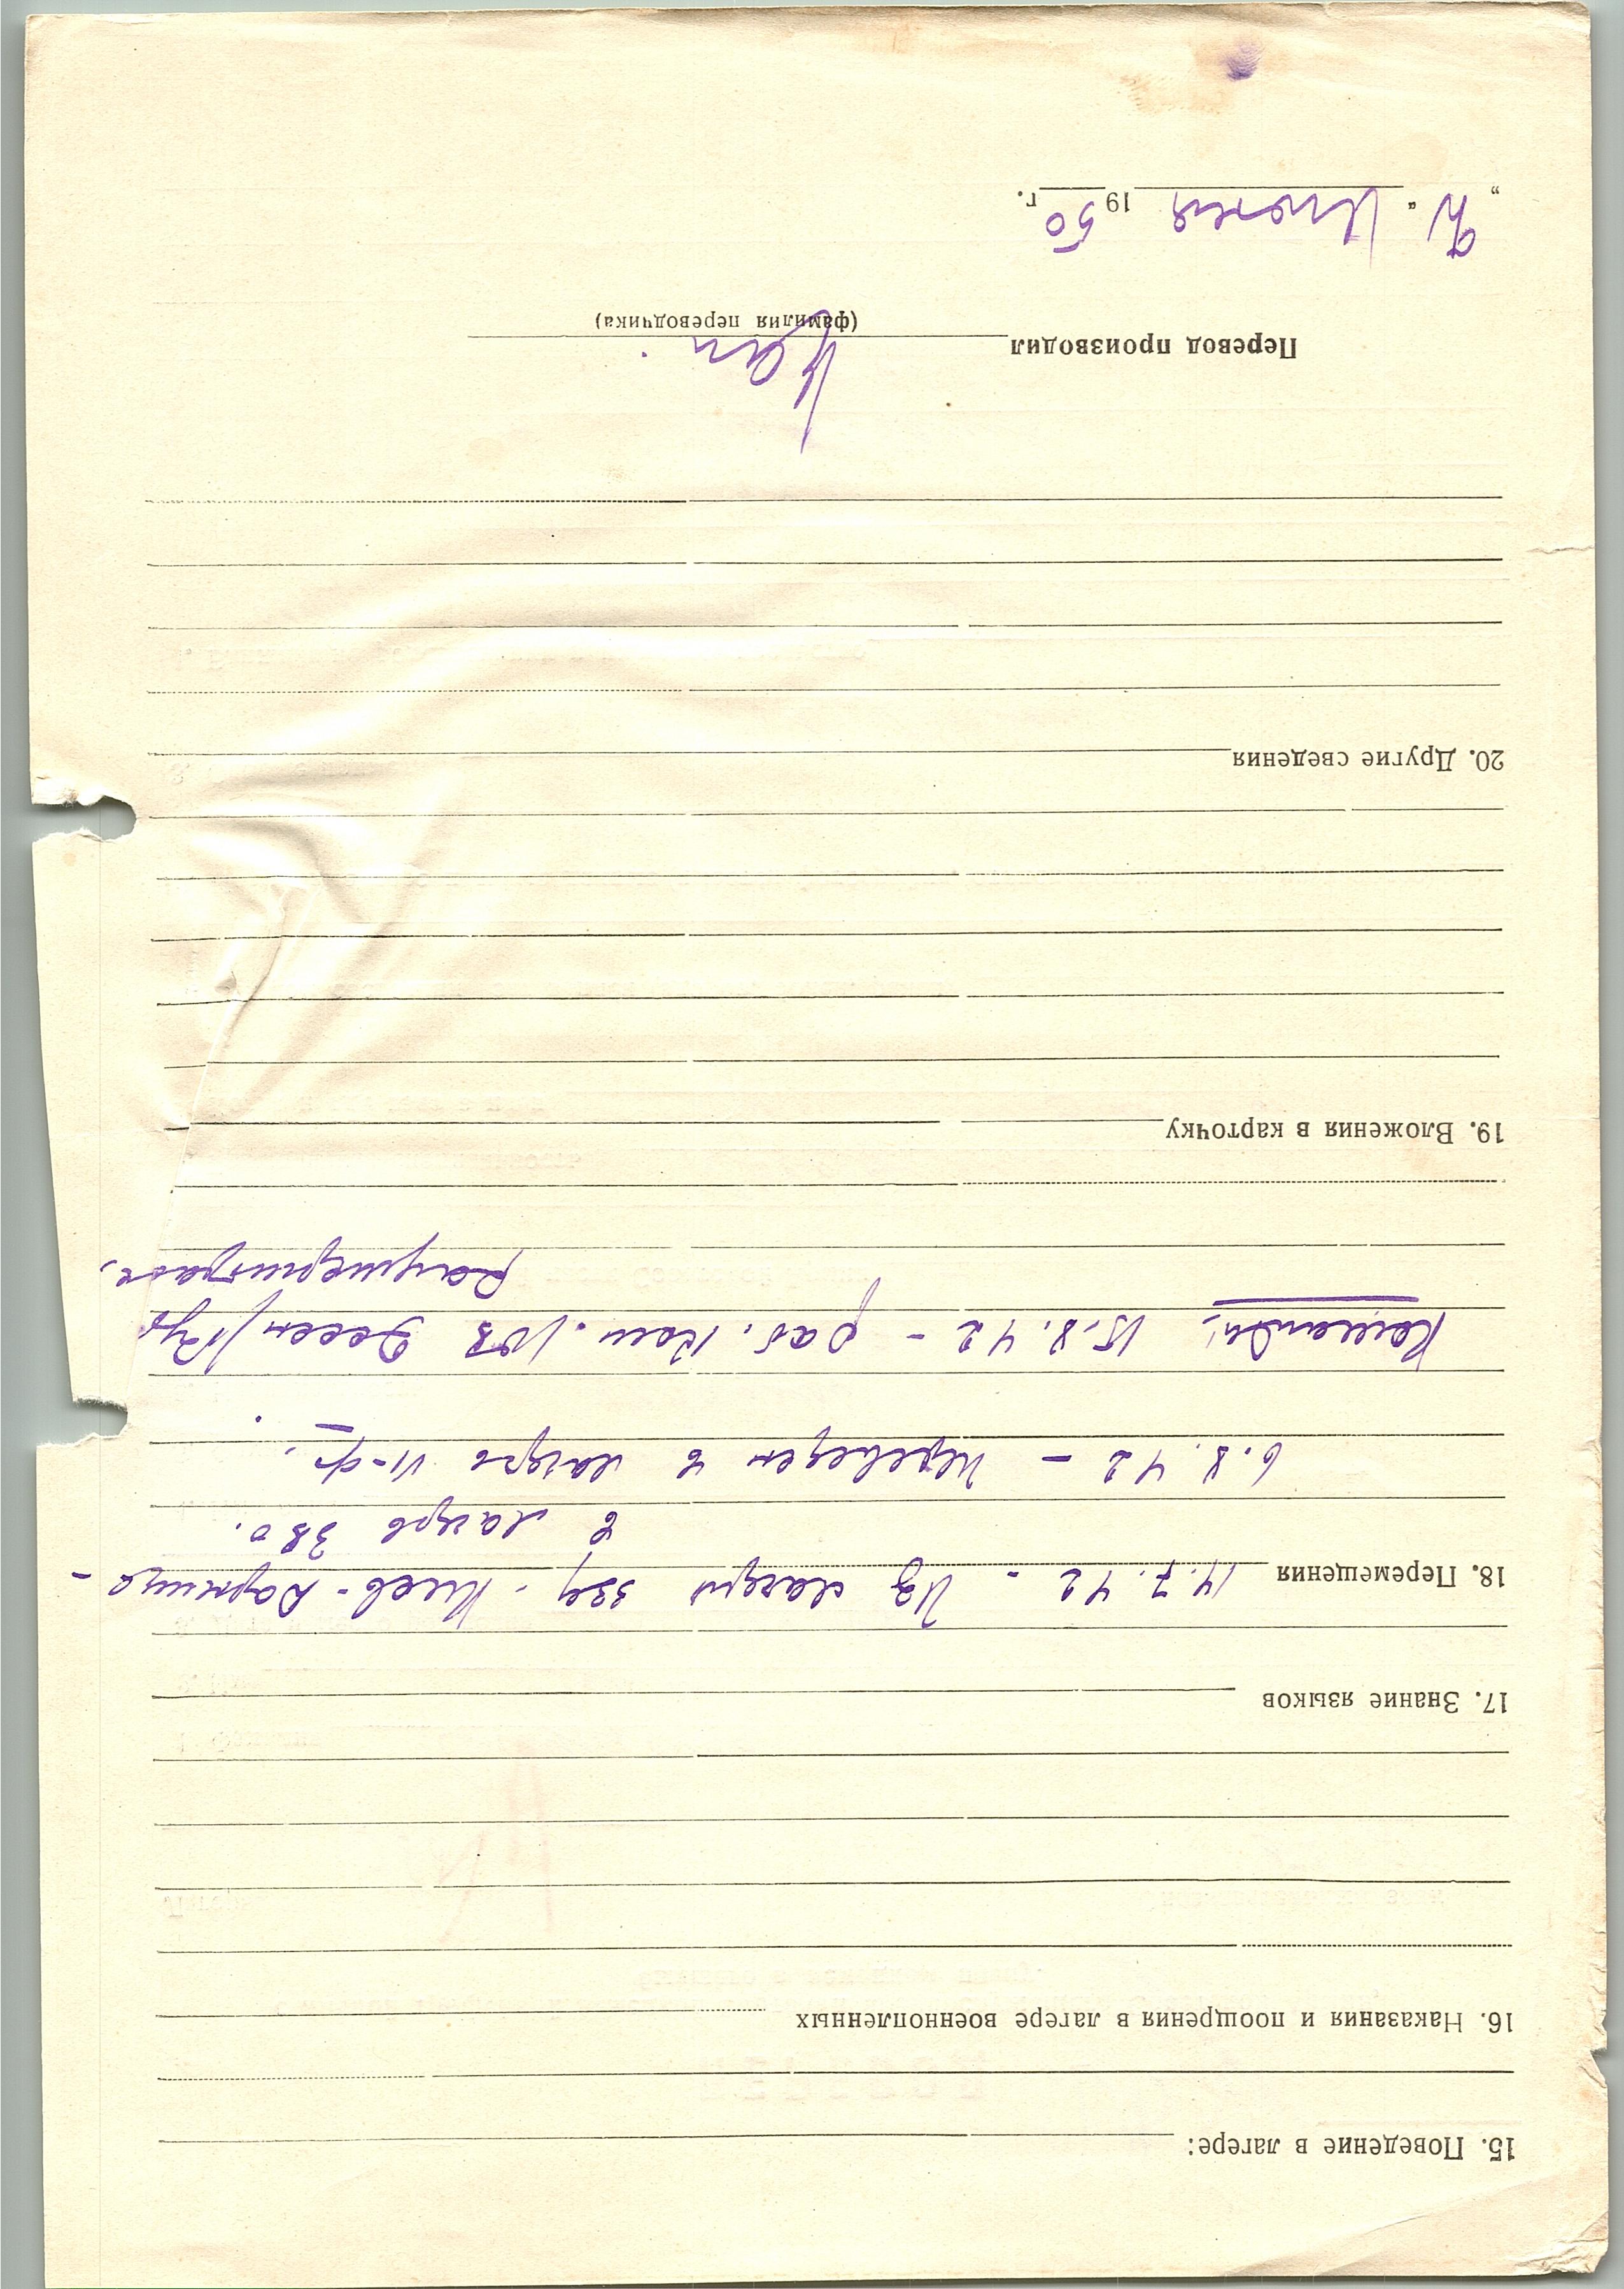 15. Поведение в лагере:
16. Наказания и поощрения в лагере военнопленных
17. Знание языков
18. Перемещения 14.7.42 - Из лагеря 339 - Киев-Дарница -
в лагерь 380.
6.8.42 - Переведен в лагерь VI-ф.
Команды: 15.8.42 - раб. ком. 103 Эссен/Рур
19. Вложения в карточку
20. Другие сведения
Перевод производил
(фамилия переводчика)
" " Июня 1950 г.